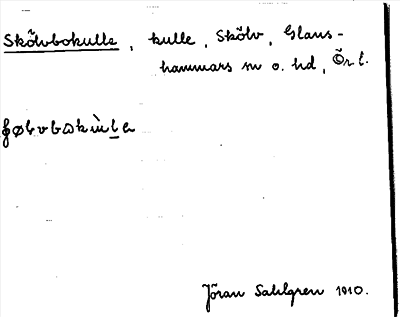 Skölvbokulle, kulle, Skölv, Glans-
hammars sn o. hd, Ör l.
Jöran Sahlgren 1910.